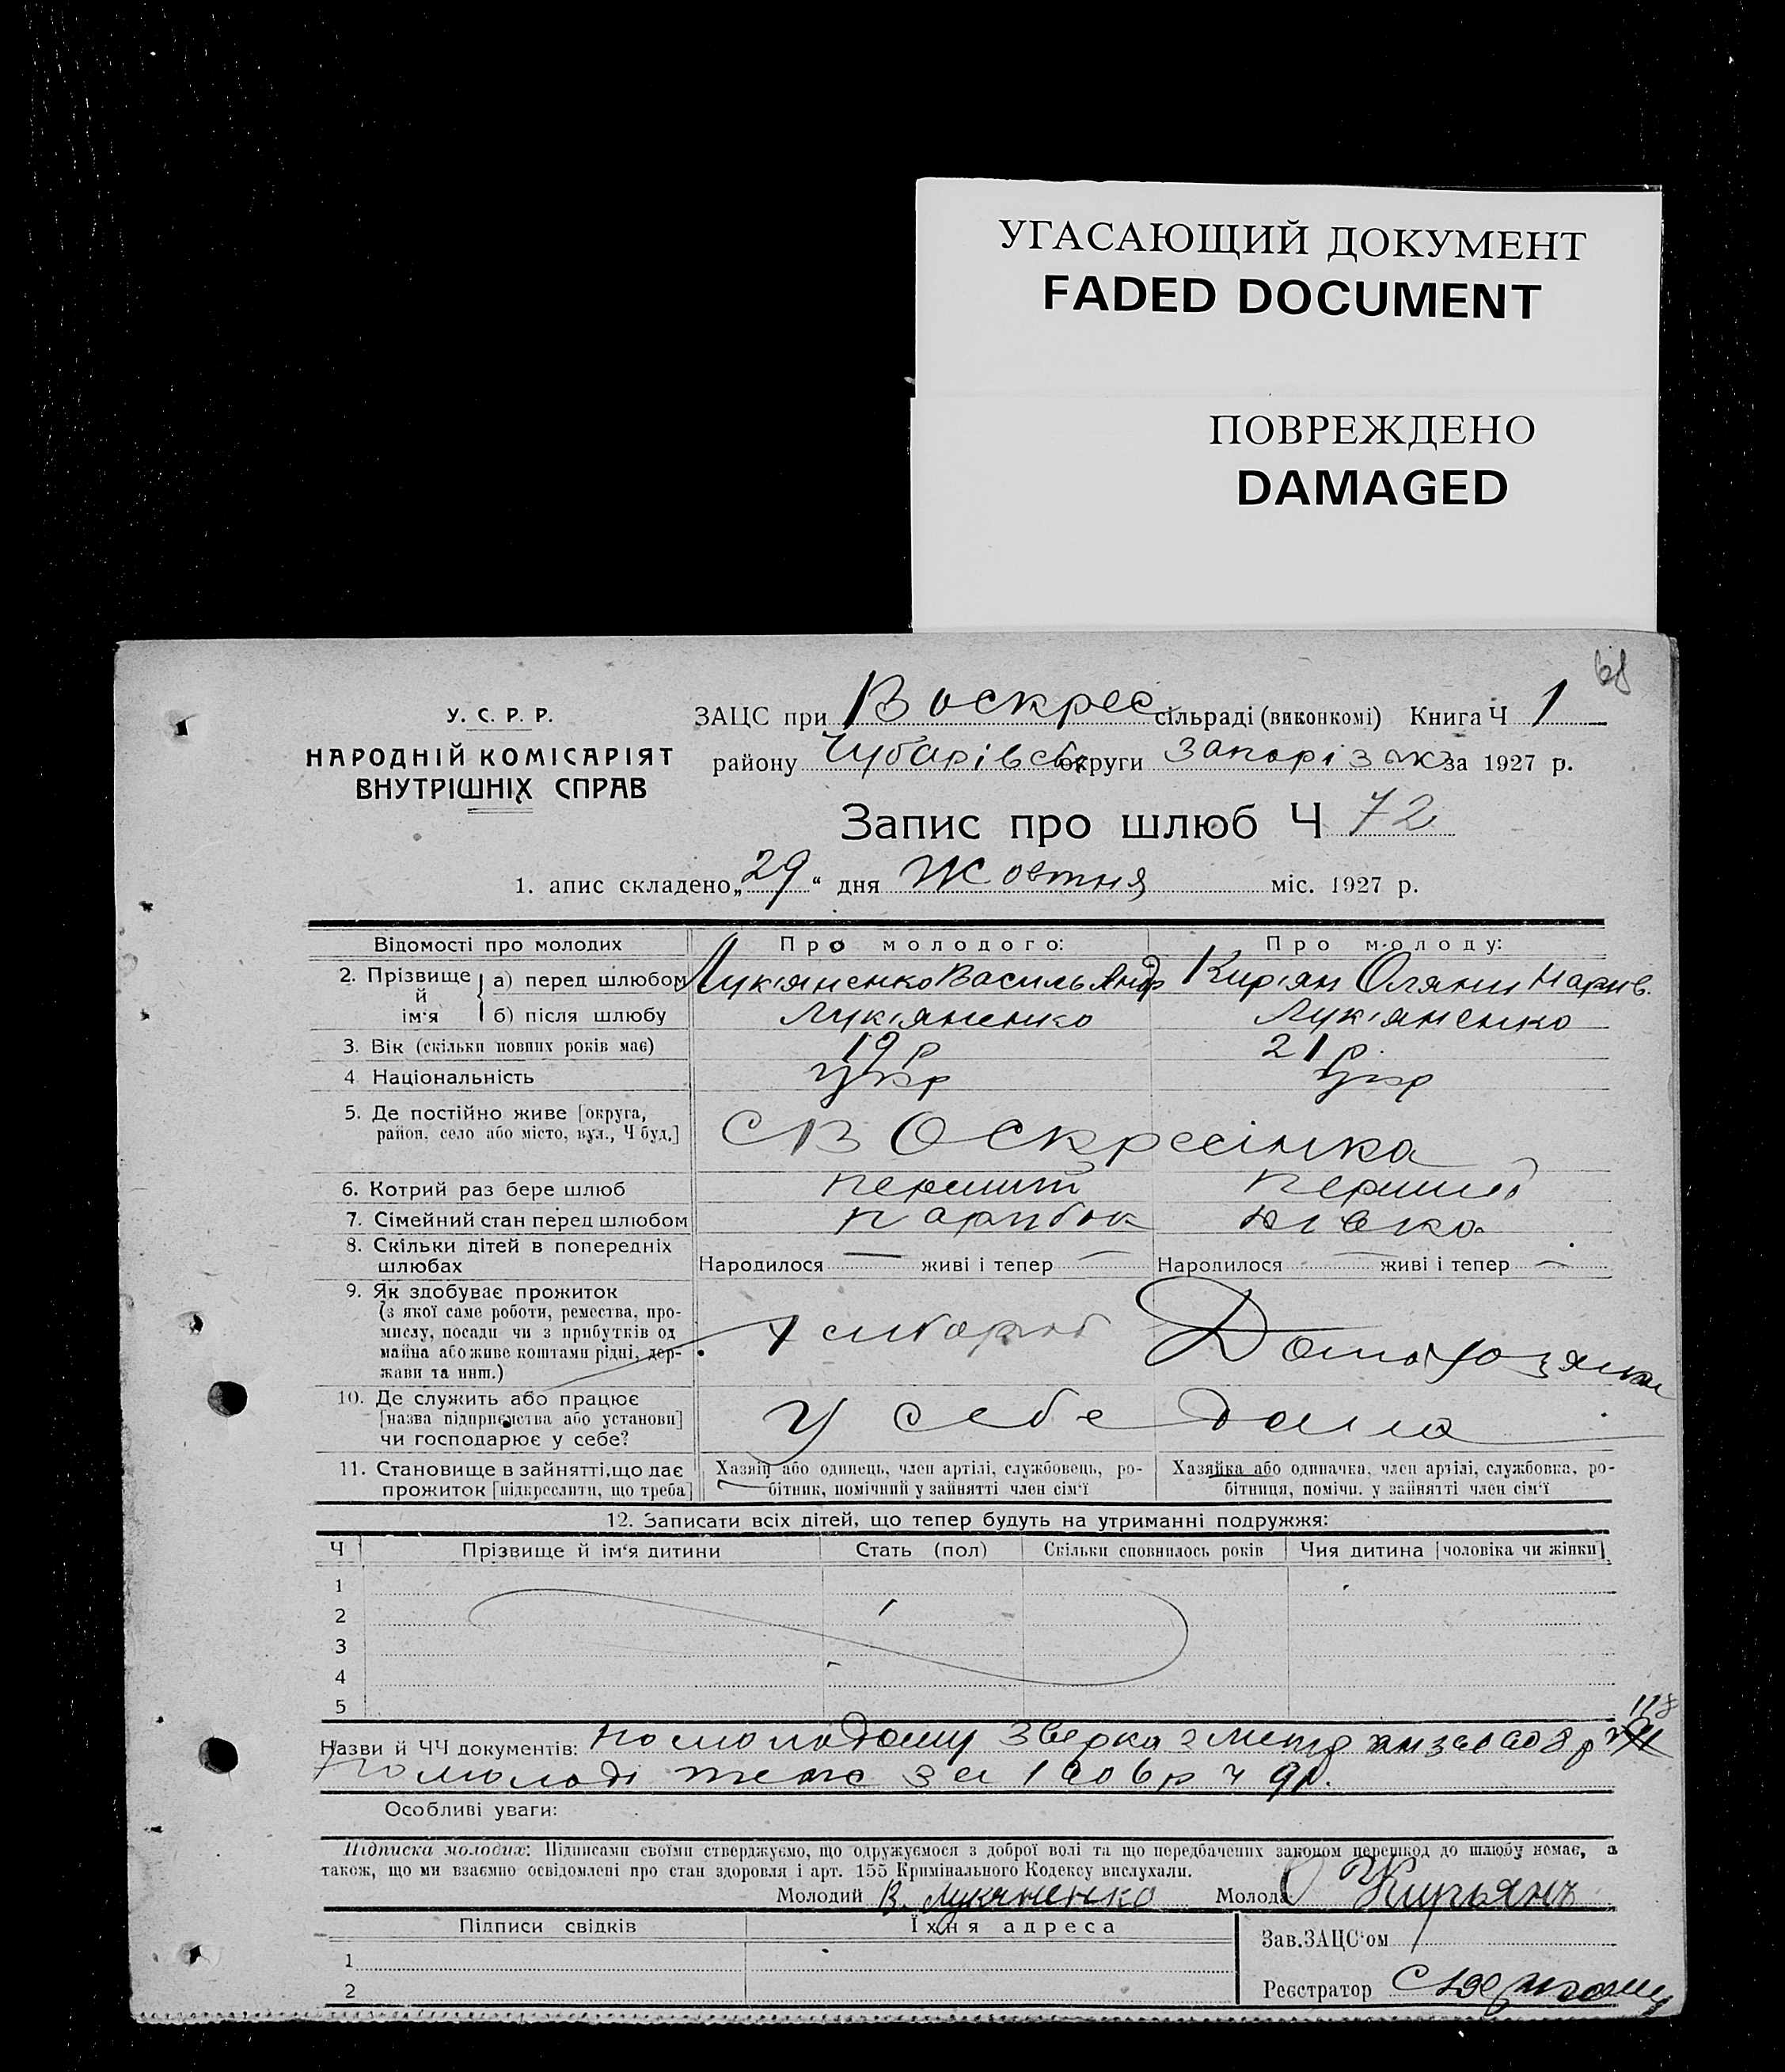 УГАСАЮЩИЙ ДОКУМЕНТ
FADED DOCUMENT
ПОВРЕЖДЕНО
DAMAGED
68
У. С. Р. Р.
НАРОДНІЙ КОМІСАРІЯТ
ВНУТРІШНІХ СПРАВ
ЗАЦС при Воскрес сільраді (виконкомі) Книга Ч 1
району Чубарівськ округи Запорізьк за 1927 р.
Запис про шлюб Ч 72
1. апис складено „29“ дня Жовтня міс. 1927 р.
Відомості про молодих Про молодого: Про молоду:
2. Прізвище й ім'я а) перед шлюбом Лук'яненко Василь Андр Кир'ян Оляни Марив.
б) після шлюбу Лук'яненко Лук'яненко
3. Вік (скільки повних років має) 19 р 21 р.
4 Національність Укр Укр
5. Де постійно живе [округа,
район, село або місто, вул., Ч буд.] С Воскресінка
6. Котрий раз бере шлюб перший перший
7. Сімейний стан перед шлюбом парубок дівка
8. Скільки дітей в попередніх
шлюбах Народилося — живі і тепер — Народилося — живі і тепер —
9. Як здобуває прожиток
(з якої саме роботи, ремества, про-
мислу, посади чи з прибутків од
майна або живе коштами рідні, дер-
жави та инш.) Хлібороб Домохозяйка
10. Де служить або працює
[назва підприємства або установи]
чи господарює у себе? У себе дома
11. Становище в зайнятті, що дає
прожиток [підкреслити, що треба]
Хазяїн або одинець, член артілі, службовець, ро-
бітник, помічний у зайнятті член сім'ї
Хазяйка або одиначка, член артілі, службовка, ро-
бітниця, помічн. у зайнятті член сім'ї
12. Записати всіх дітей, що тепер будуть на утриманні подружжя:
Ч Прізвище й ім'я дитини Стать (пол) Скільки сповнилось років Чия дитина [чоловіка чи жінки]
1
2
3
4
5
118
Назви й ЧЧ документів: По молодому Зверка з метр за 1908 р
По молоді теж за 1906 р ч 9р.
Особливі уваги:
Підписка молодих: Підписами своїми стверджуємо, що одружуємося з доброї волі та що передбачених законом перешкод до шлюбу немає, а
також, що ми взаємно освідомлені про стан здоровля і арт. 155 Кримінального Кодексу вислухали.
Молодий В. Лукяненко Молода О Кирьянъ
Підписи свідків Їхня адреса
Зав. ЗАЦС'ом
1
2
Реєстратор